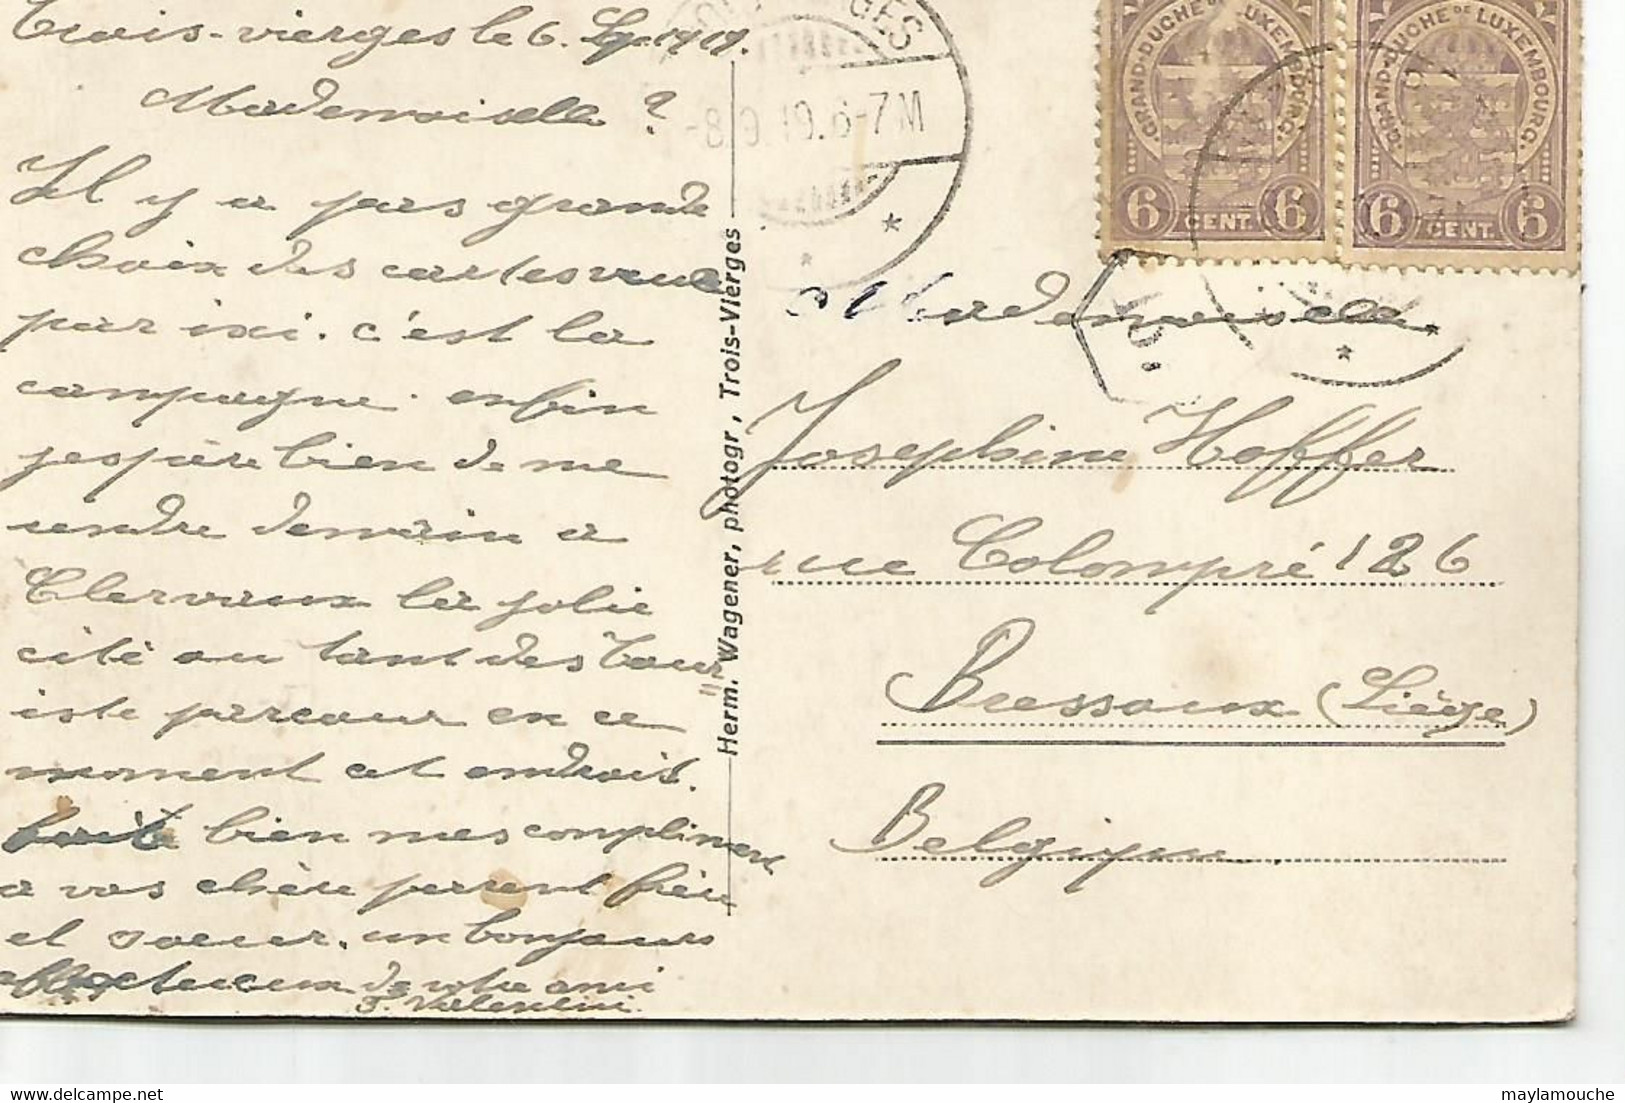 Trois-vierges le 6. 1919.
Mademoiselle ?
Il y a pas grande
choix des cartes vue
par ixi. c'est la
campagne. enfin
j'espère bien de me
rendre demain a
Clervaux la jolie
cité au tant des Tour
iste parcour en ce
moment cet endroit.
bien mes compliment
a vos chère parent frère
et soeur. un bonjours
affectueux de votre ami
J. Valentini.
Herm. Wagener, photogr, Trois-Vierges
-8.9.19.6-7M
GRAND-DUCHÉ DE LUXEMBOURG.
6 CENT. 6
GRAND-DUCHÉ DE LUXEMBOURG.
6 CENT. 6
Mademoiselle
Josephine Hoffer
rue Colompré 126
Bressoux (Liège)
Belgique
maylamouche